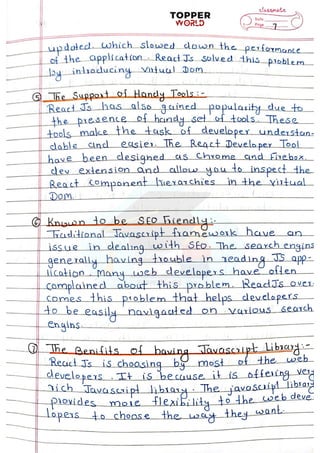 TOPPER
WORLD
classmate
Date
Page 7
updated. which slowed down the performance
of the application. React Js solved this problem
by introducing virtual Dom.
⑤ The Support of Handy Tools:-
React Js has also gained popularity due to
the presence of handy set of tools. These
tools make the task of developer understan-
dable and easier. The React Developer Tool
have been designed as Chrome and Firebox.
dev extension and allow you to inspect the
React component hierarchies in the virtual
Dom.
⑥ Known to be SEO Friendly:-
Traditional Javascript framework have an
issue in dealing with SEO. The search engins
generally having trouble in reading JS app-
lication. Many web developers have often
complained about this problem. ReadJs over
comes this problem that helps developers
to be easily navigated on various search
engins.
⑦ The Benifits of having Javascript Library:-
React Js is choosing by most of the web
developers. It is because it is offering very
rich Javascript library. The javascript library
provides more flexibility to the web deve
lopers to choose the way they want.